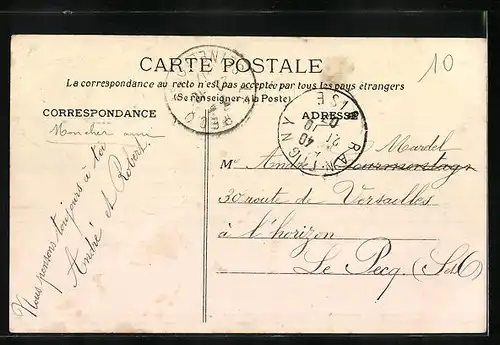 10
CARTE POSTALE
La correspondance au recto n'est pas acceptée par tous les pays étrangers
(Se renseigner à la Poste)
CORRESPONDANCE
ADRESSE
Mon cher ami
Nous pensons toujours à toi
André et Robert.
Mardel
Mr André
30 route de Versailles
à l'horizon
Le Pecq (S&O)